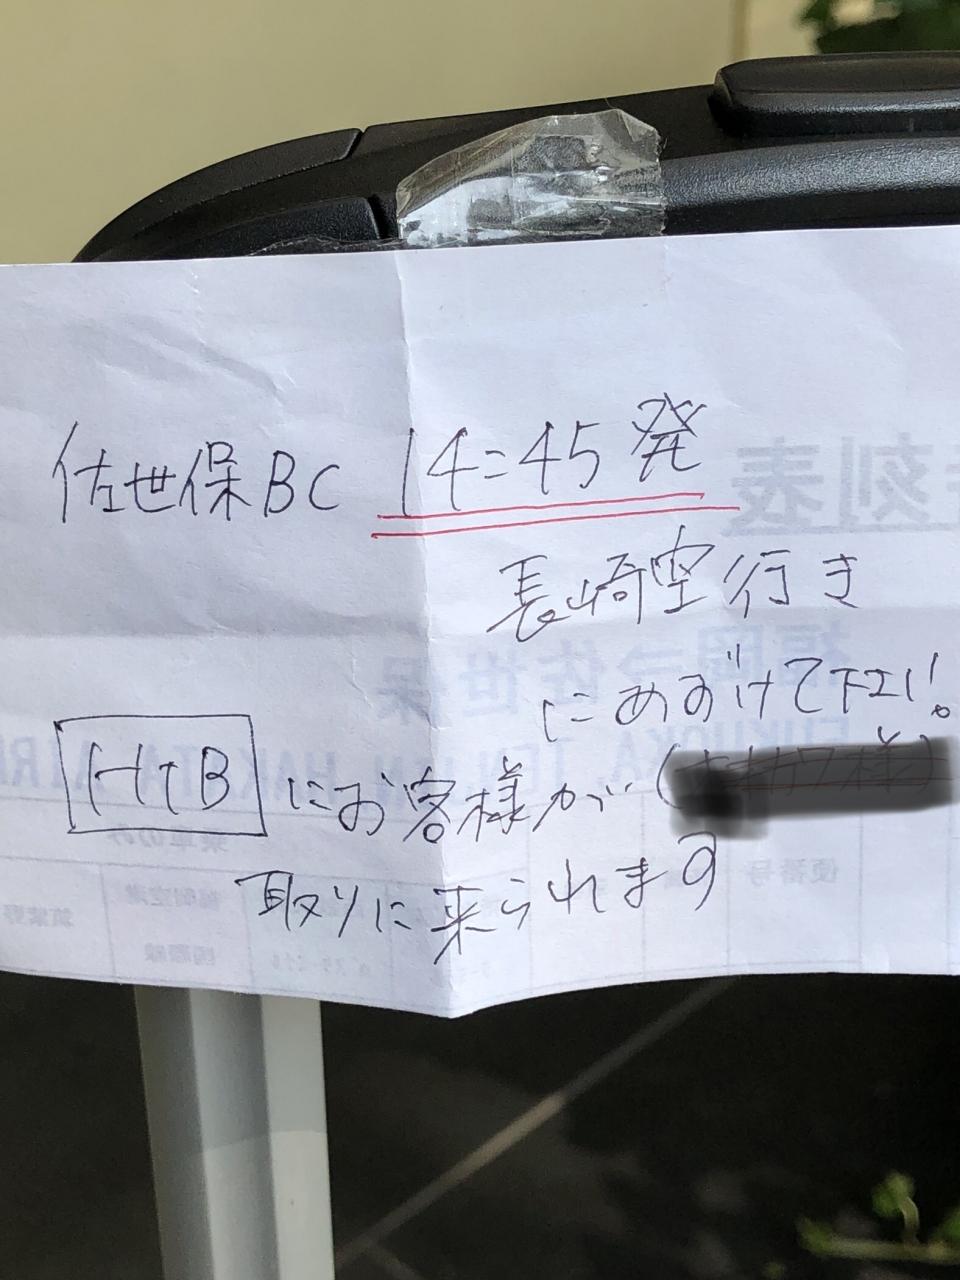 佐世保BC 14=45発
長崎空行き
にあずけて下さい。
HTB にお客様が(
取りに来られます
刻表
福岡⇒佐世保
FUKUOKA, TENJIN, HAKATA
便番号
福岡空港
国際線
筑紫野